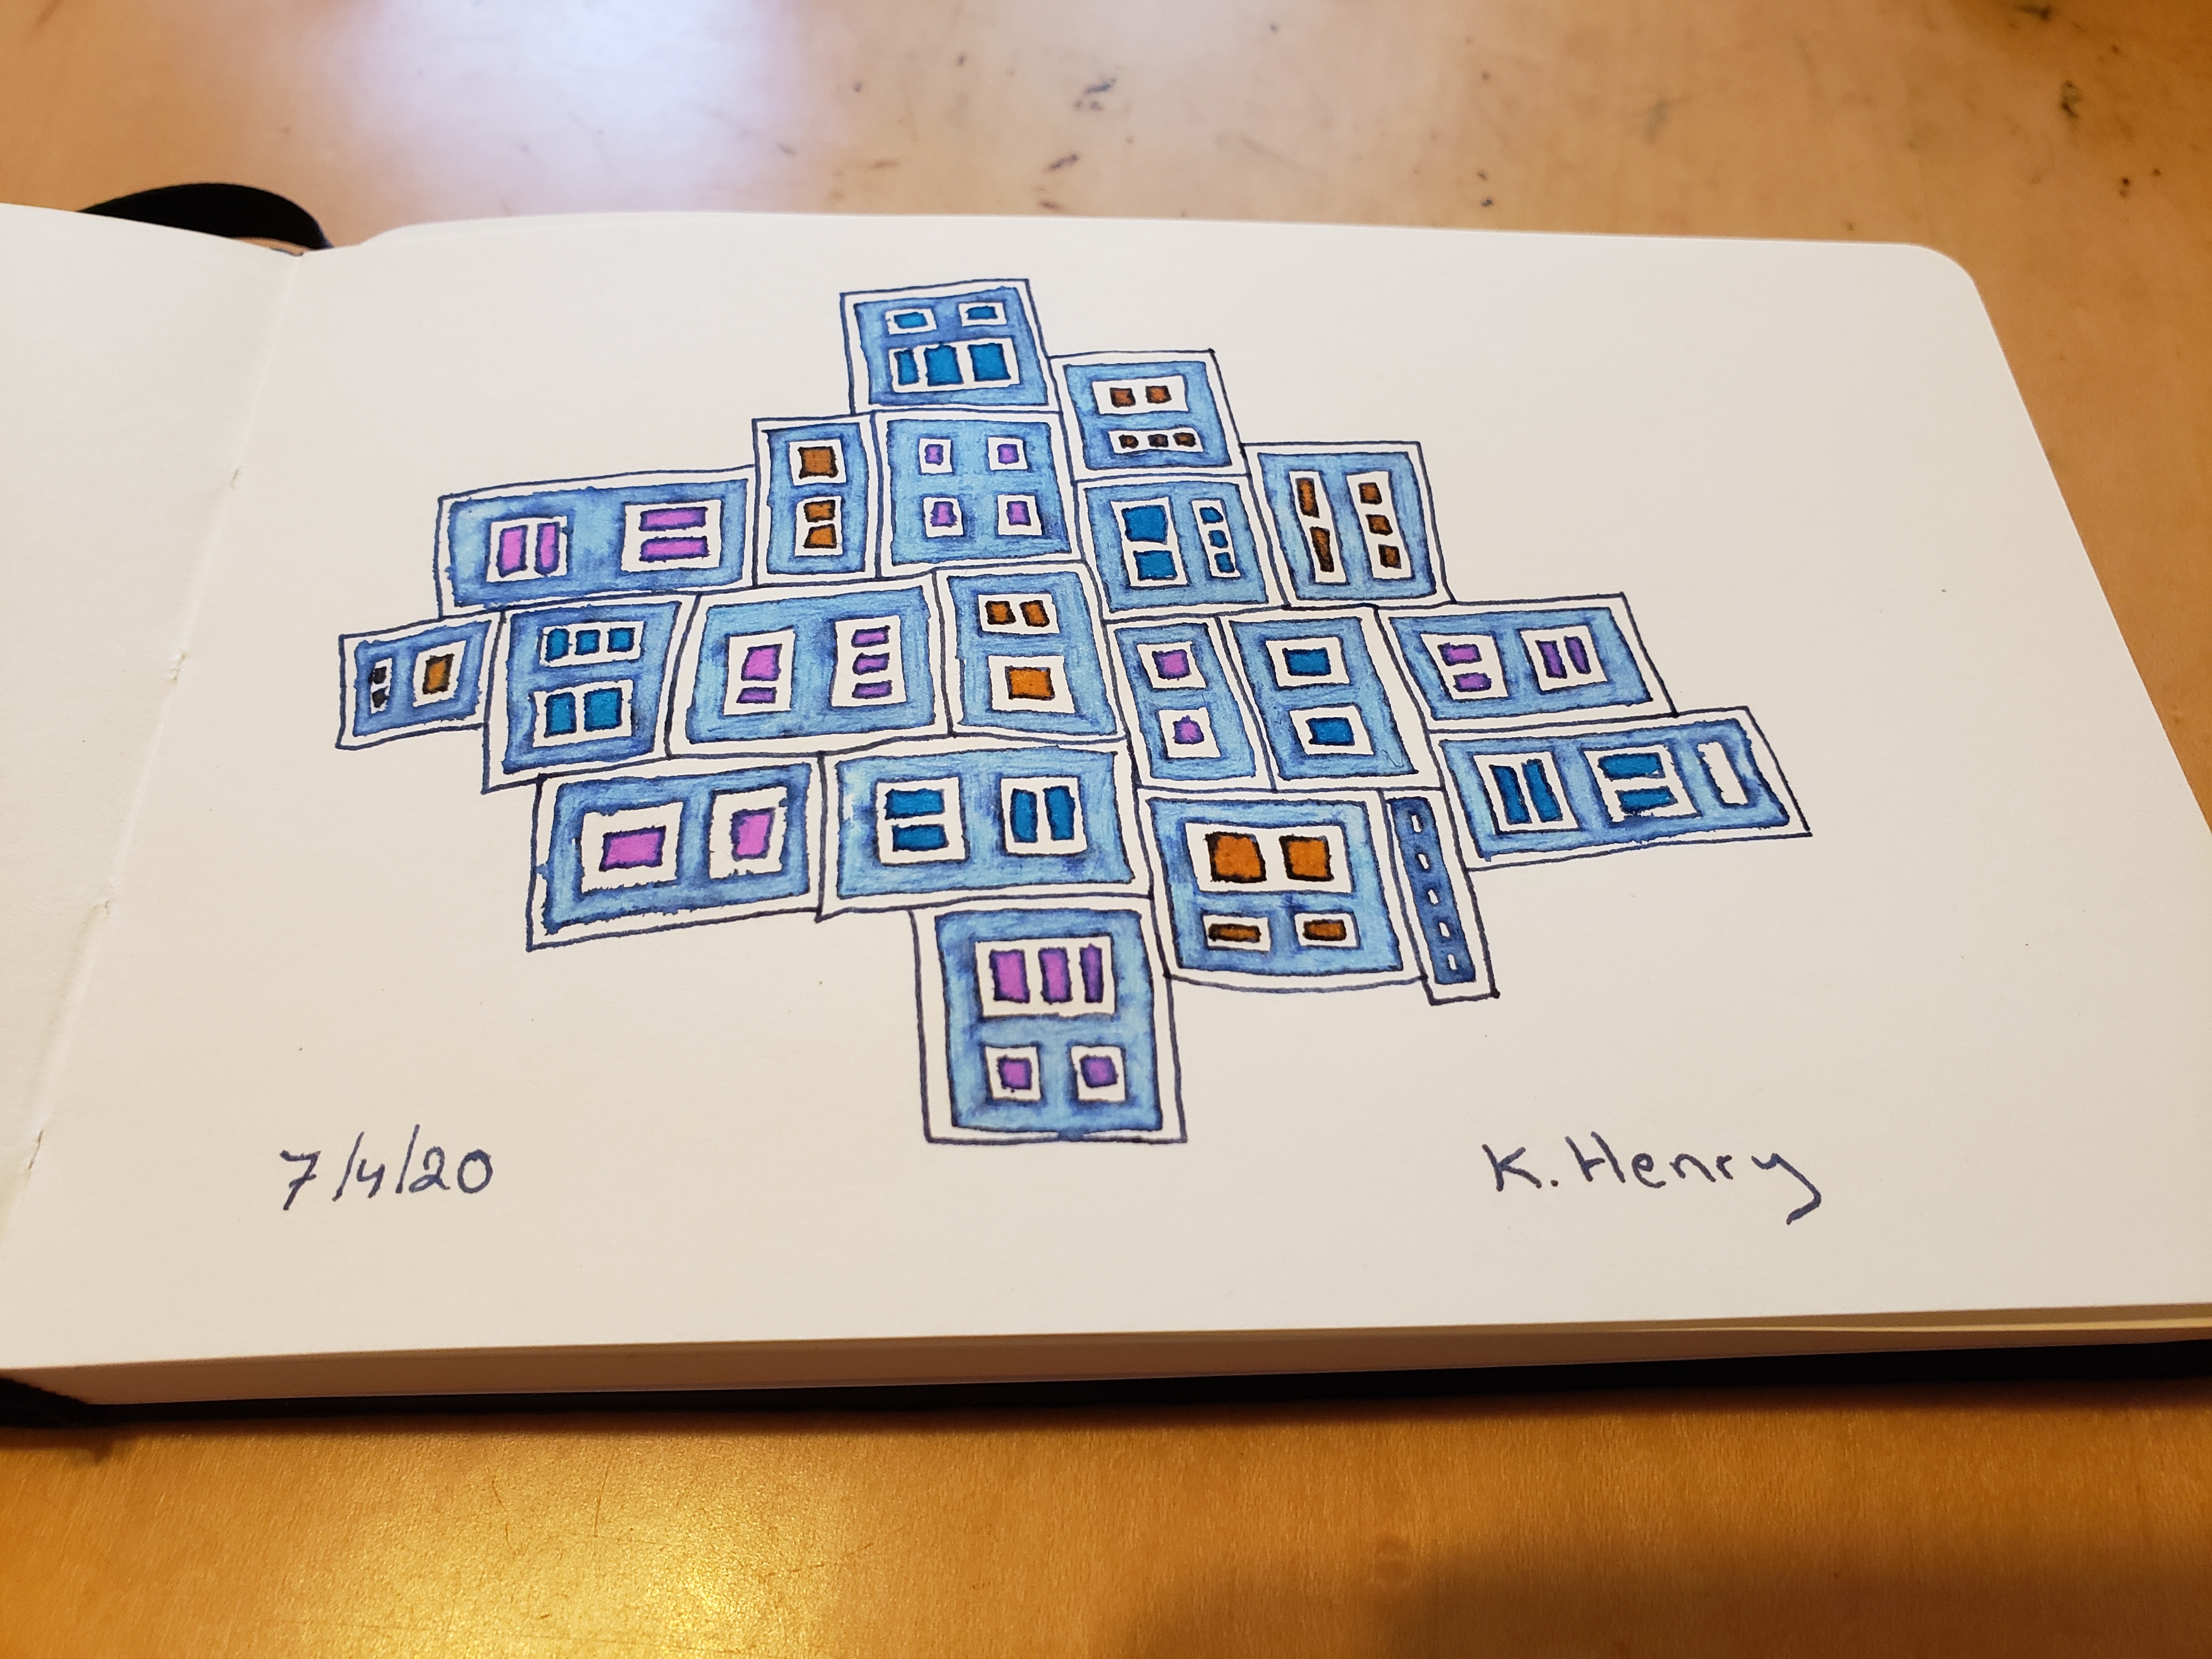 7/4/20
K. Henry